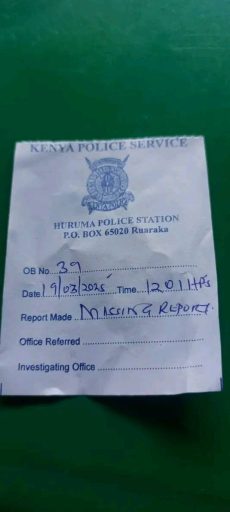 KENYA POLICE SERVICE
HURUMA POLICE STATION
P.O. BOX 65020 Ruaraka
OB No 39
Date 19/03/2025 Time 1201 HRS
Report Made MISSING REPORT.
Office Referred
Investigating Office